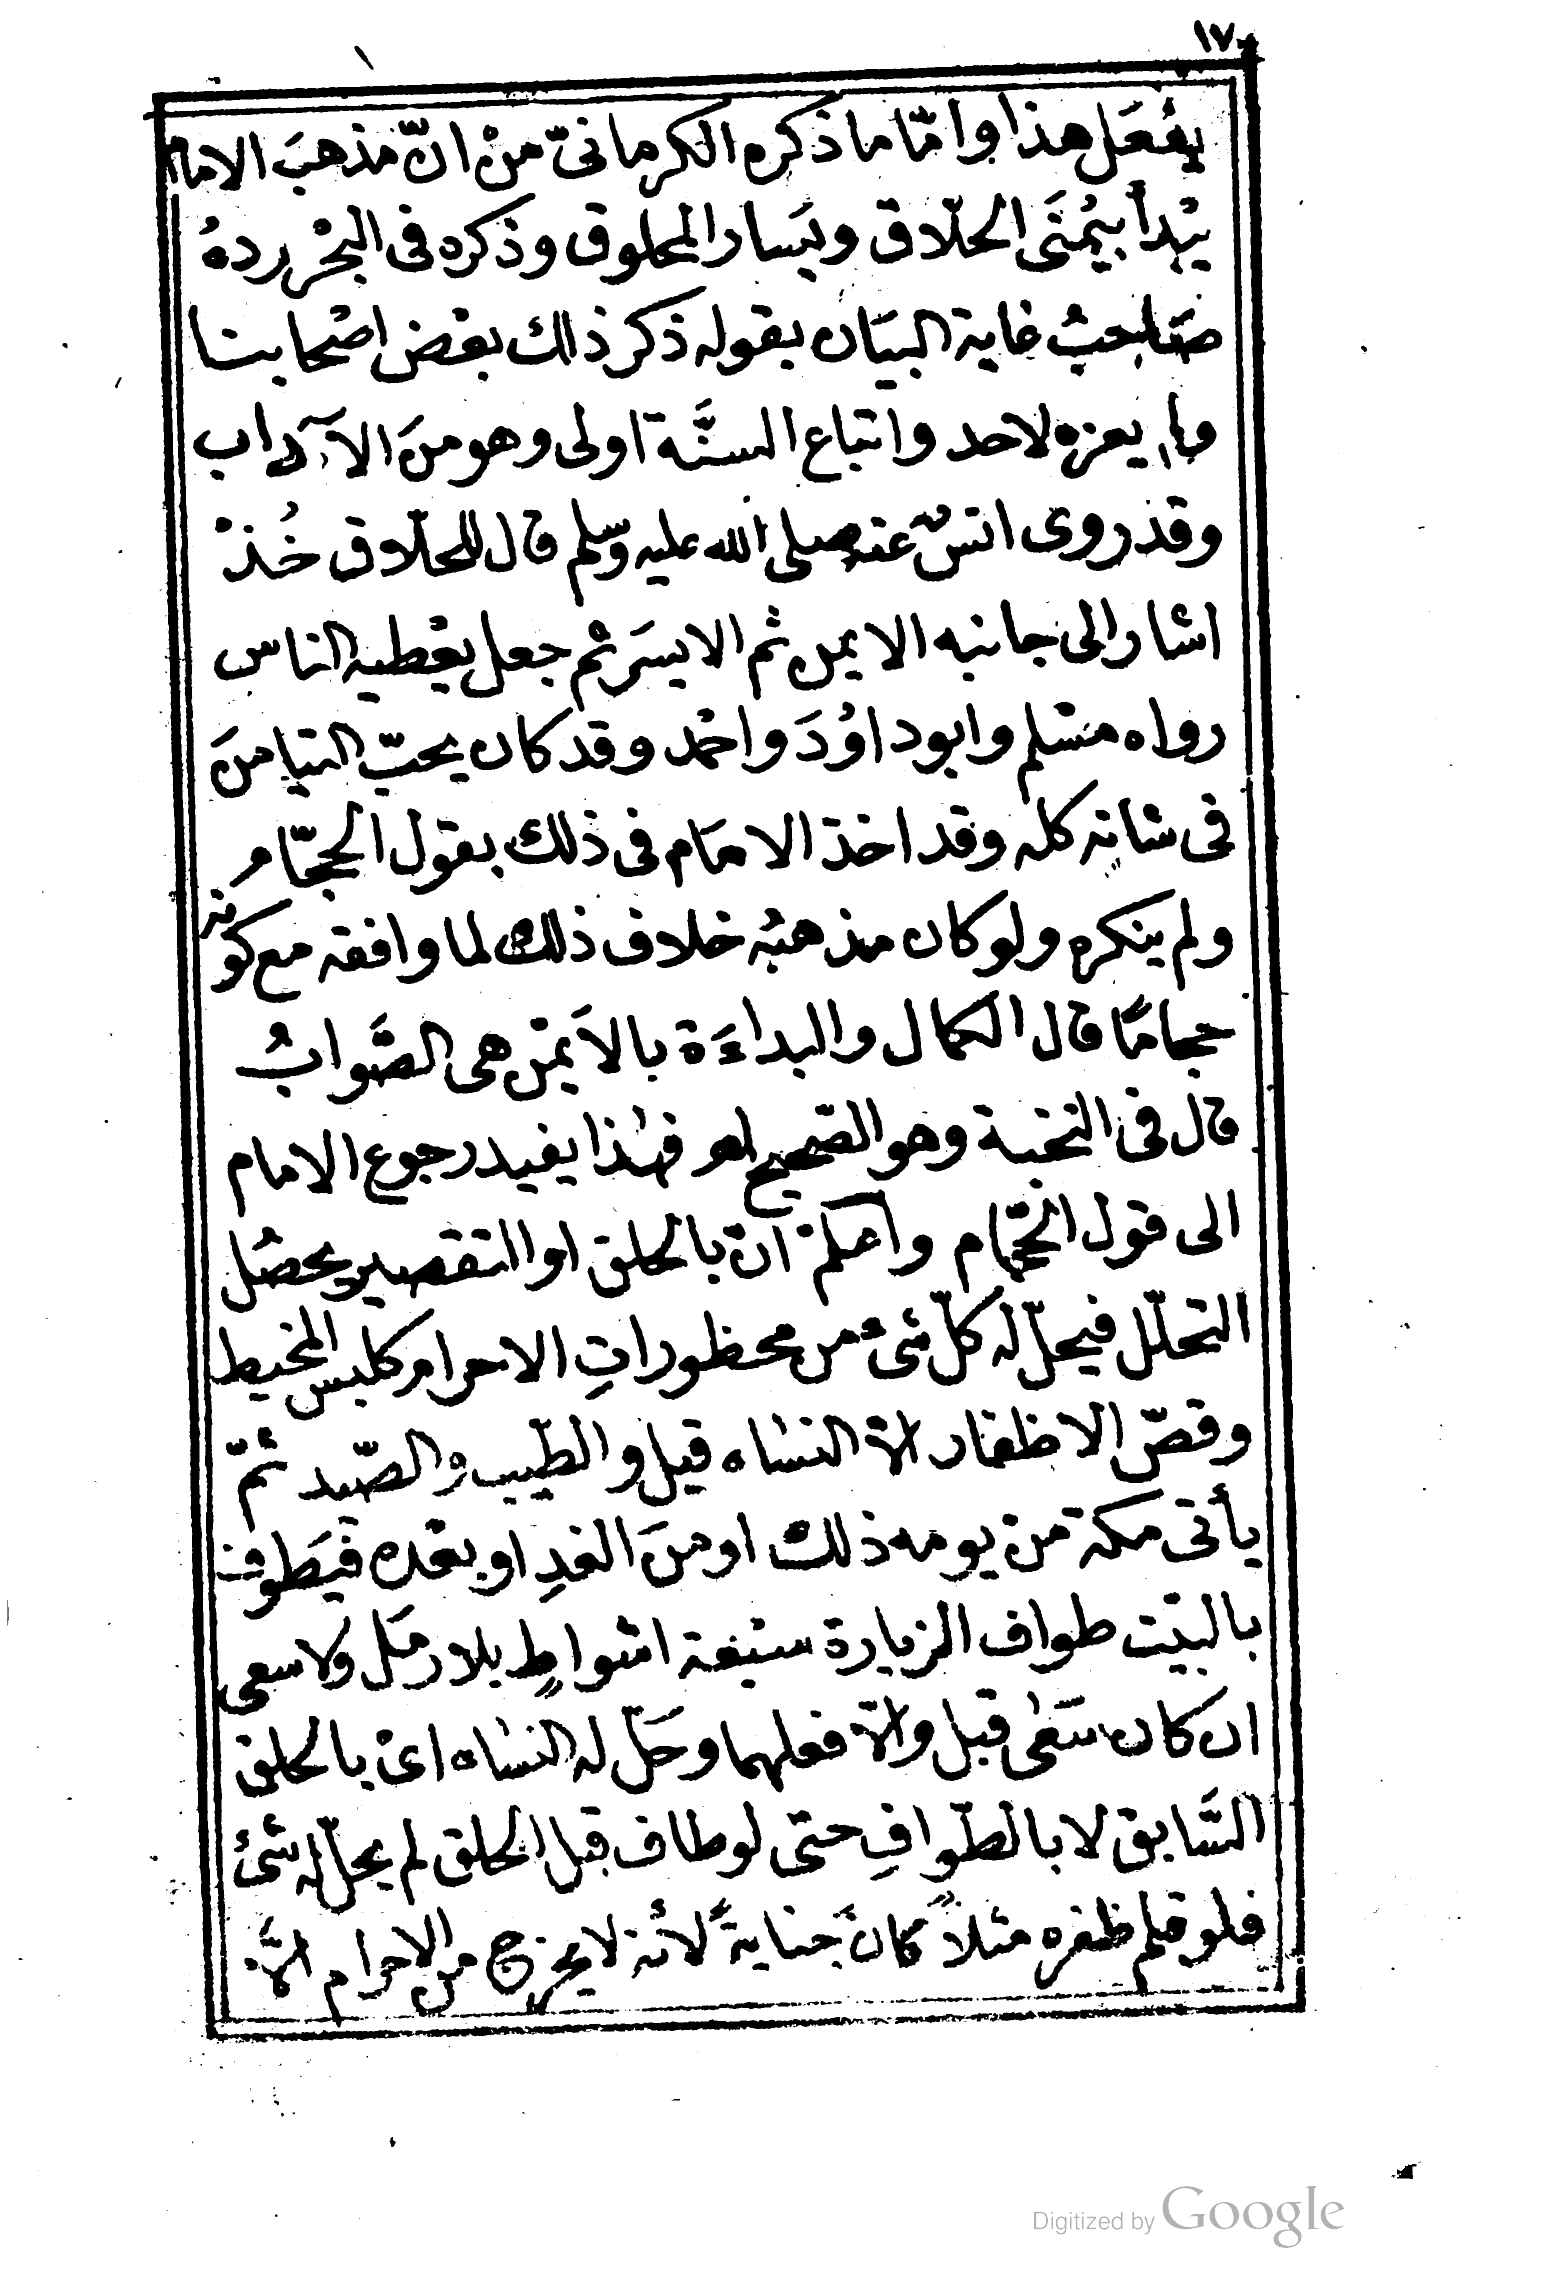 ١٧
يفعَل هذا وامّا ما ذكره الكرمانىّ منْ انّ مذهبَ الامام
يبْدأ بيُمنَى الحلّاق ويَسار المحلوق وذكره فى البحْر ردهُ
صَاحبُ غاية البيَان بقوله ذكر ذلك بعْض اصْحابنا
ولم يعزه لاحد واتباع السنَّة اولى وهو منَ الآداب
وقدْ روى انسٌ عنه صلى الله عليه وسلم قال للحلّاق خُذْ
اشار الى جانبه الايمن ثم الايسَر ثم جعل يعْطيه الناس
رواه مسْلم وابو داوُدَ واحْمد وقد كان يحبّ التيامنَ
فى شانه كله وقد اخذ الامَام فى ذلك بقول الحجّام
ولم ينكره ولو كان مذهبُه خلاف ذلك لما وافقه مع كونه
حجامًا قال الكمال والبداءَة بالاَيمْن هى الصَّوابُ
قال فى النخبة وهو الصّحيح اهـ فهٰذا يفيد رجوع الامام
الى قول الحجّام واعلمْ انّ بالحلق او التقصير يحصُل
التحلّل فيحلّ له كلّ شىء من محظوراتِ الاحرام كلبس المخيط
وقصّ الاظفار الّا النسَاء قيل والطّيب والصّيد ثمّ
يأتى مكة منْ يومه ذلك او منَ الغدِ او بعْده فيَطوف
بالبيْت طواف الزيارة سبْعة اشواطٍ بلا رمَل ولا سعى
ان كان سَعٰى قبل والّا فعلهما وحَلّ له النسَاء اىْ بالحلق
السَّابق لا بالطّوافِ حتى لو طاف قبل الحلق لم يحلّ له شئ
فلو قلم ظفره مثلاً كانَ جنايةً لأنه لا يخرج من الاحرام الّا
Digitized by Google